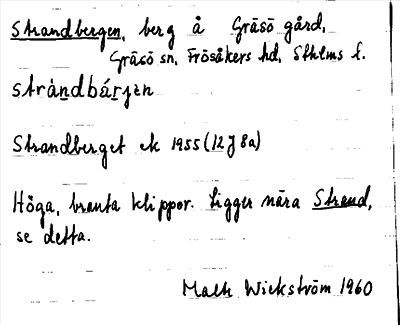 Strandbergen, berg å Gräsö gård,
Gräsö sn, Frösåkers hd, Sthlms l.
stràndbárjen
Strandberget ek 1955 (12J 8a)
Höga, branta klippor. Ligger nära Strand,
se detta.
Wickström 1960